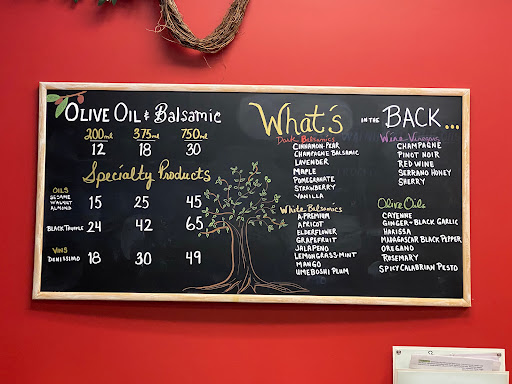 Olive Oil & Balsamic
200ml 375ml 750ml
12 18 30
Specialty Products
OILS
SESAME
WALNUT
ALMOND
15 25 45
BLACK TRUFFLE
24 42 65
VINS
DENISSIMO
18 30 49
What's IN THE BACK...
Dark Balsamics
CINNAMON-PEAR
CHAMPAGNE BALSAMIC
LAVENDER
MAPLE
POMEGRANATE
STRAWBERRY
VANILLA
White Balsamics
A PREMIUM
APRICOT
ELDERFLOWER
GRAPEFRUIT
JALAPENO
LEMONGRASS-MINT
MANGO
UMEBOSHI PLUM
Wine-Vinegar
CHAMPAGNE
PINOT NOIR
RED WINE
SERRANO HONEY
SHERRY
Olive Oils
CAYENNE
GINGER-BLACK GARLIC
HARISSA
MADAGASCAR BLACK PEPPER
OREGANO
ROSEMARY
SPICY CALABRIAN PESTO